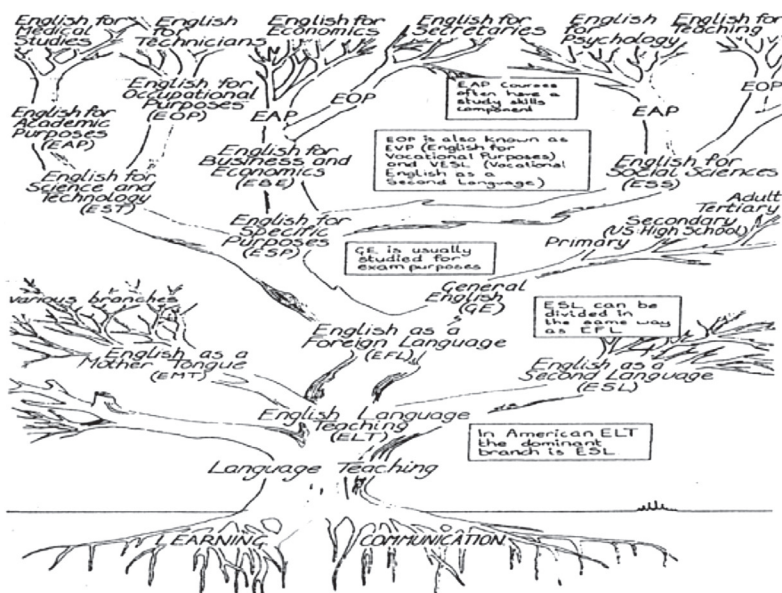 English for
Medical
Studies
English
for
Technicians
English for
Economics
English for
Secretaries
English
for
Psychology
English for
Teaching
English for
Occupational
Purposes
(EOP)
EAP
EOP
EAP courses
often have a
study skills
component
EAP
EOP
English for
Academic
Purposes
(EAP)
English for
Business and
Economics
(EBE)
EOP is also known as
EVP (English for
Vocational Purposes)
and VESL (Vocational
English as a
Second Language)
English for
Social Sciences
(ESS)
English for
Science and
Technology
(EST)
English for
Specific
Purposes
(ESP)
GE is usually
studied for
exam purposes
Primary
Secondary
(US: High School)
Adult
Tertiary
General
English
(GE)
various branches
English as a
Mother Tongue
(EMT)
English as a
Foreign Language
(EFL)
ESL can be
divided in
the same way
as EFL
English as a
Second Language
(ESL)
English Language
Teaching
(ELT)
In American ELT
the dominant
branch is ESL
Language Teaching
LEARNING
COMMUNICATION